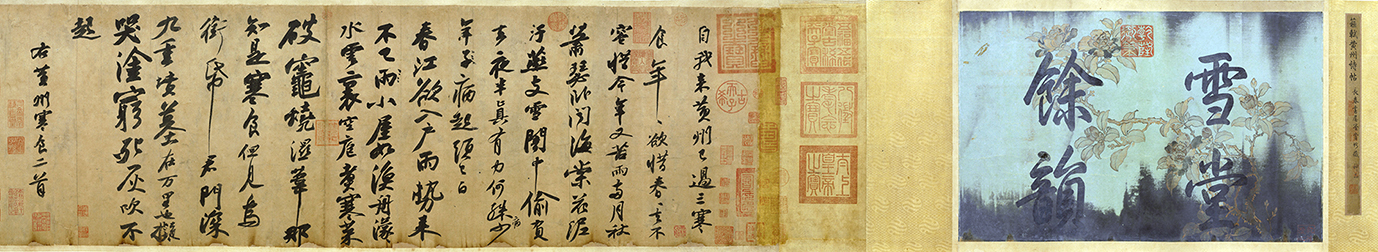 蘇軾黃州詩帖
雪堂
餘韻
自我来黄州已過三寒
食年〻欲惜春〻去不
容惜今年又苦雨兩月秋
蕭瑟卧聞海棠花泥
汙燕支雪闇中偷負
去夜半真有力何殊病少
年子病起頭已白
春江欲入户雨勢来
不已雨小屋如漁舟濛〻
水雲裏空庖煮寒菜
破竈燒濕葦那
知是寒食但見烏
銜帋君門深
九重墳墓在万里也擬
哭塗窮死灰吹不
起
右黄州寒食二首